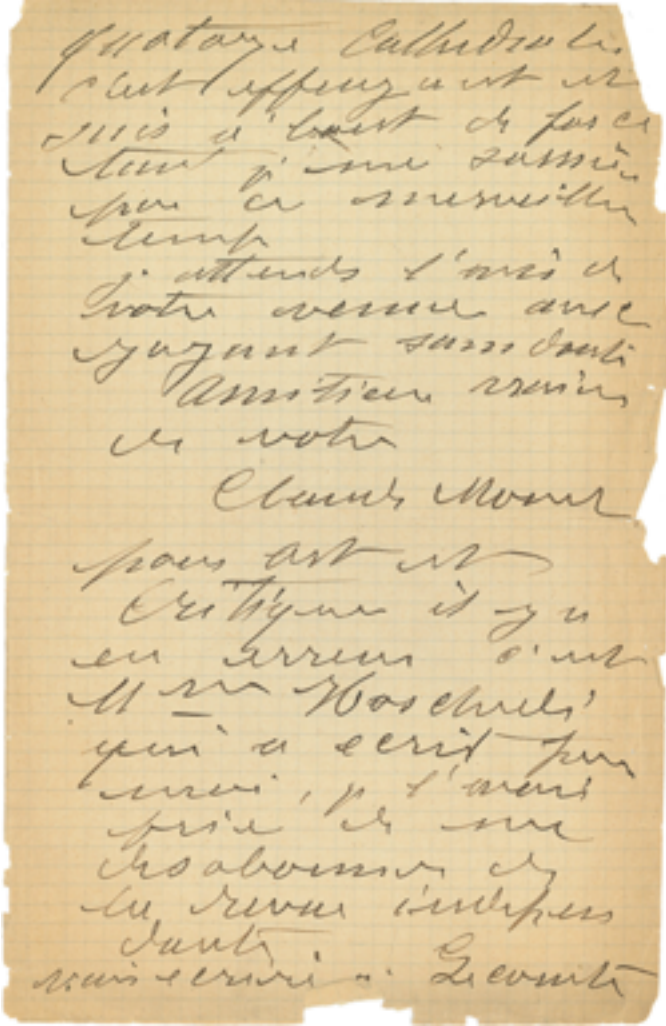 quatorze Cathedrales
c'est effrayant et
suis a bout de force
tant je me surmène
par ce merveilleux
temps
j'attends l'avis de
votre venue avec
sans doute
amitiées vraies
de votre
Claude Monet
pour art et
Critique il y a
eu erreur c'est
Mme Hoschedé
qui a ecrit pour
moi, je l'avais
prié de me
desabonner de
la revue indépen
dante.
vais ecrire a Lecomte